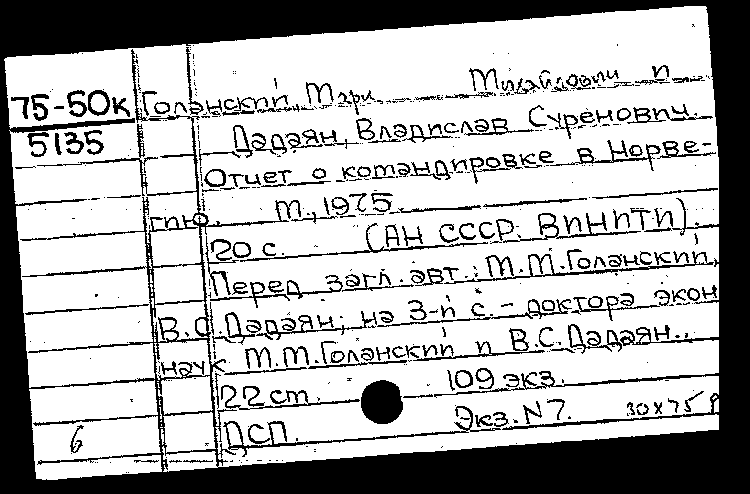 75-50к Голанский, Мари Михайлович и
5135 Дадаян, Владислав Суренович.
Отчет о командировке в Норве-
гию. М., 1975.
20 с. (АН СССР. ВИНИТИ).
Перед загл. авт.: М.М.Голанский,
В.С.Дадаян; на 3-й с. - доктора экон
наук М.М.Голанский и В.С.Дадаян.
22 cm. 109 экз.
ДСП. Экз. N 7. 30x75 р
6